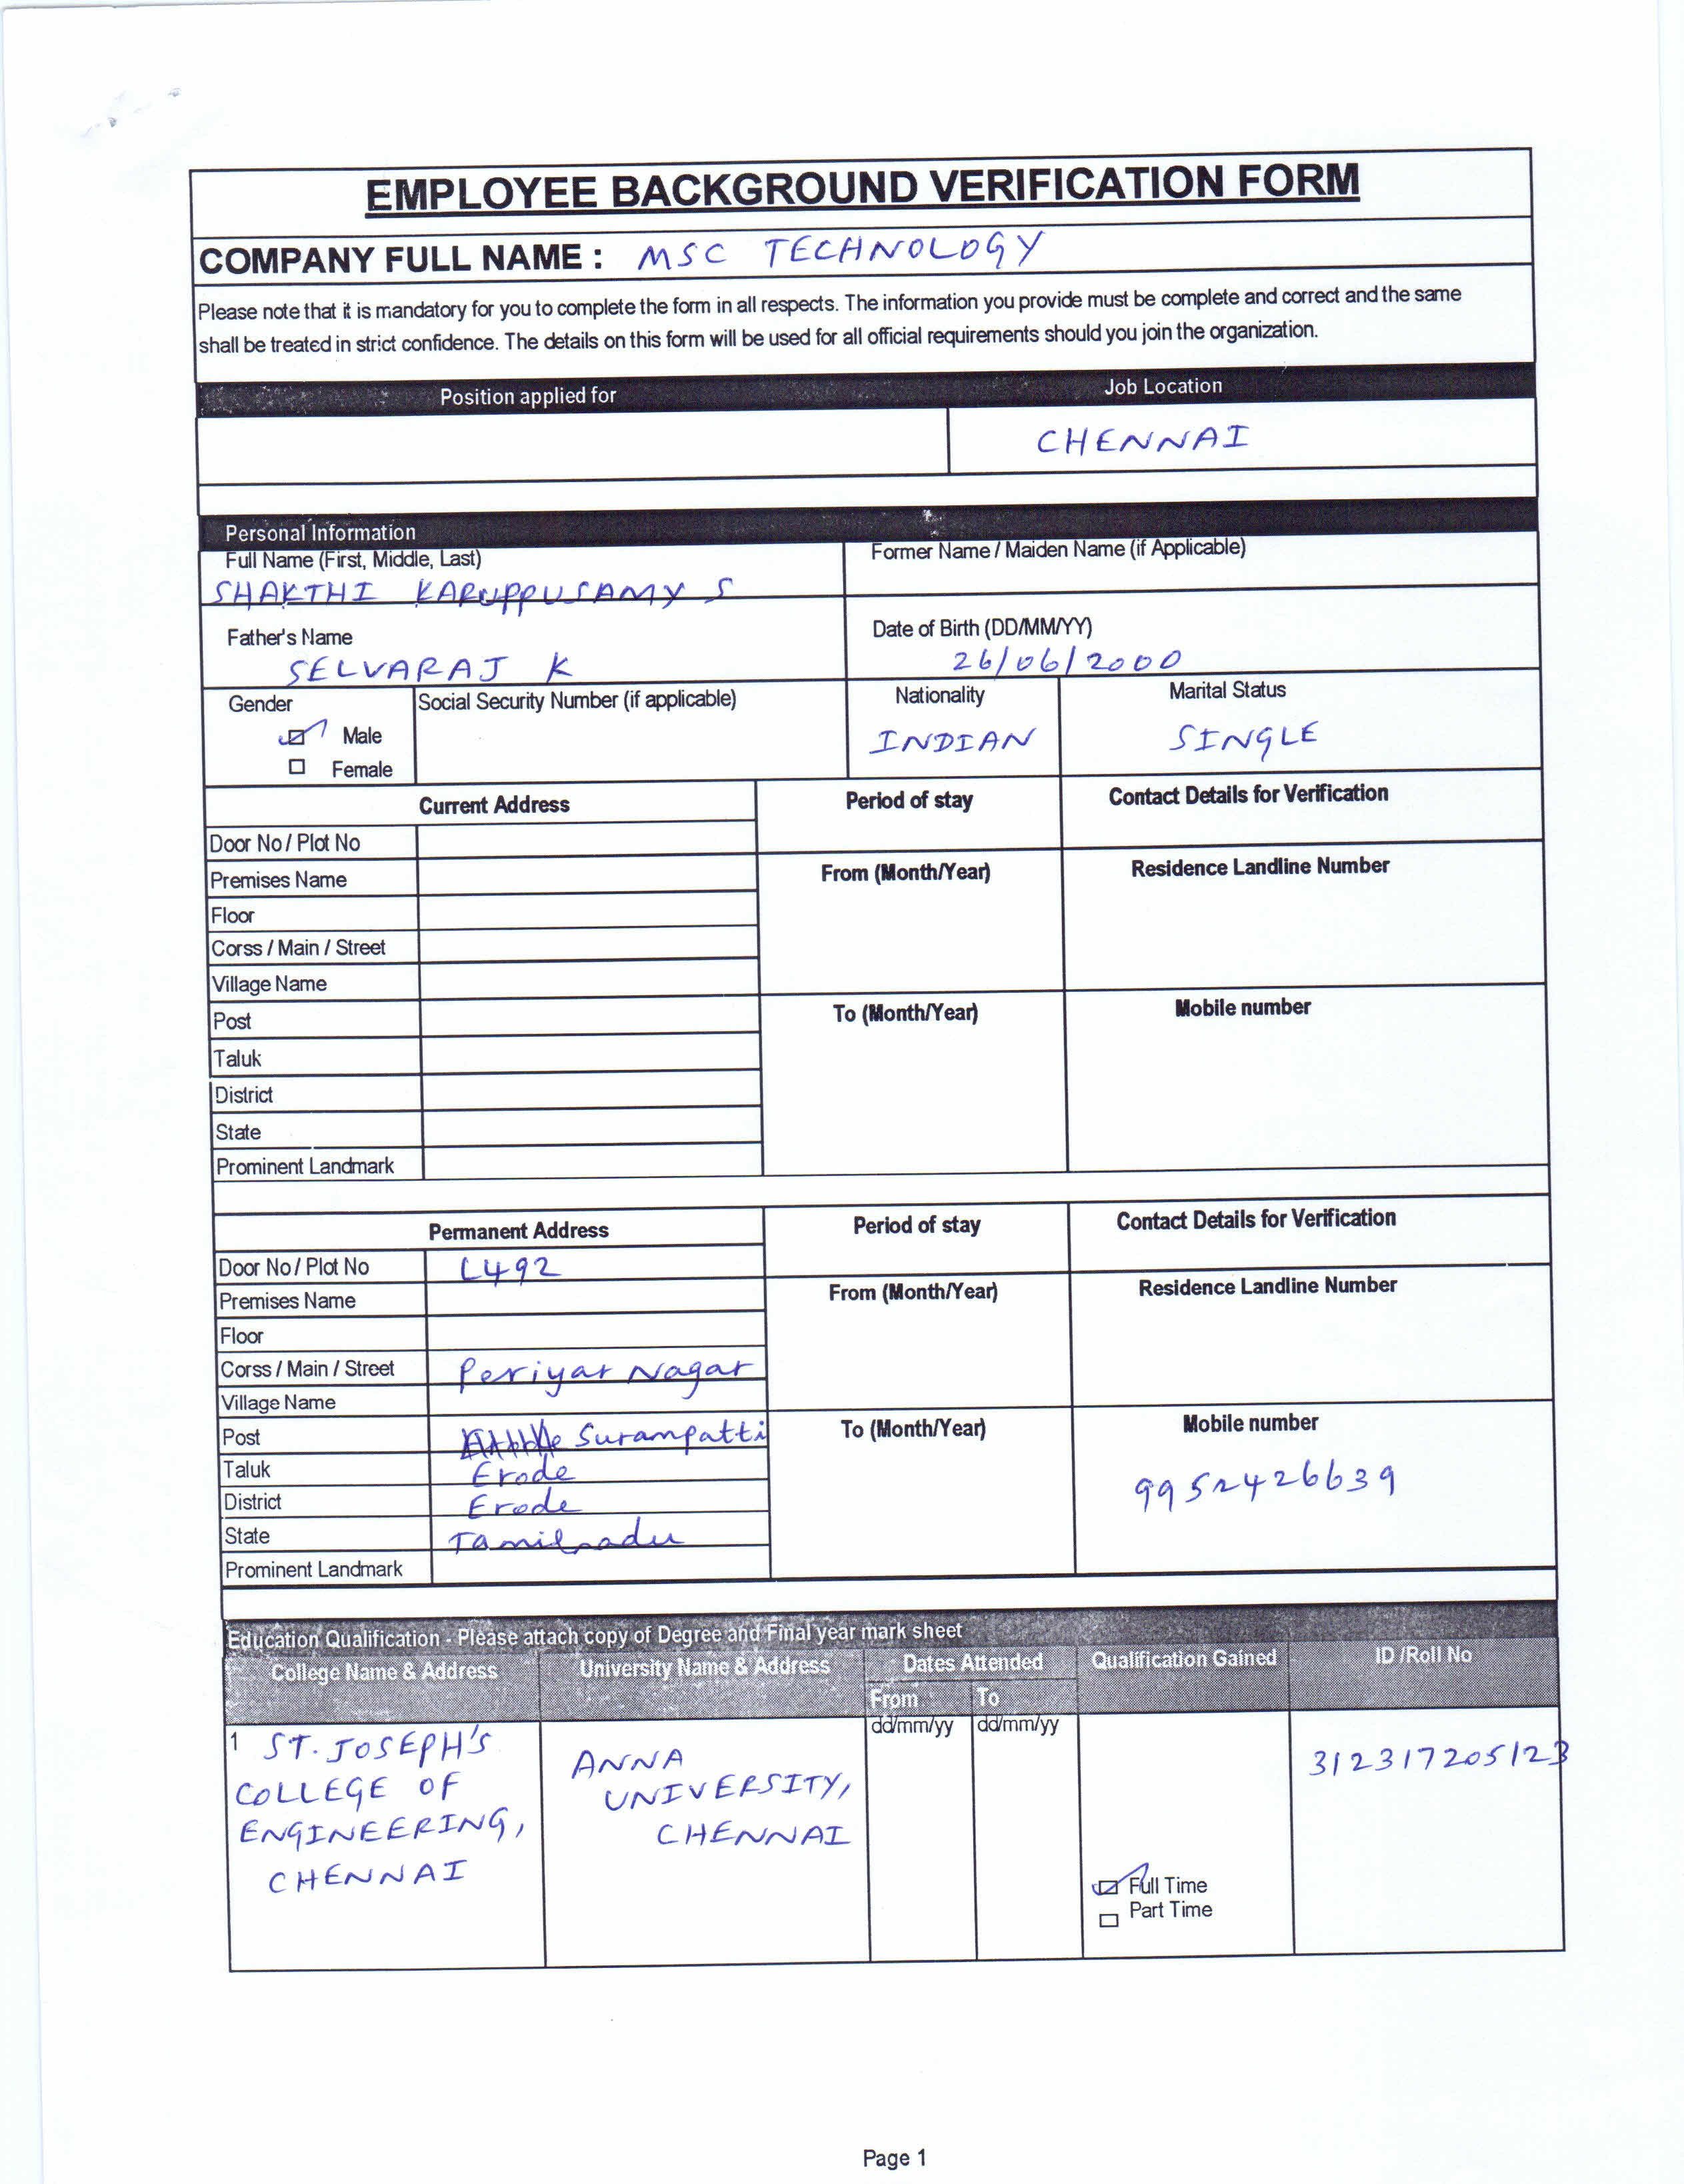 EMPLOYEE BACKGROUND VERIFICATION FORM
COMPANY FULL NAME : MSC TECHNOLOGY
Please note that it is mandatory for you to complete the form in all respects. The information you provide must be complete and correct and the same
shall be treated in strict confidence. The details on this form will be used for all official requirements should you join the organization.
Position applied for Job Location
CHENNAI
Personal Information
Full Name (First, Middle, Last) Former Name / Maiden Name (if Applicable)
SHAKTHI KARUPPUSAMY S
Father's Name Date of Birth (DD/MM/YY)
SELVARAJ K 26/06/2000
Gender Social Security Number (if applicable) Nationality Marital Status
Male INDIAN SINGLE
Female
Current Address Period of stay Contact Details for Verification
Door No / Plot No
Premises Name From (Month/Year) Residence Landline Number
Floor
Corss / Main / Street
Village Name
Post To (Month/Year) Mobile number
Taluk
District
State
Prominent Landmark
Permanent Address Period of stay Contact Details for Verification
Door No / Plot No L492
Premises Name From (Month/Year) Residence Landline Number
Floor
Corss / Main / Street Periyar Nagar
Village Name
Post Surampatti To (Month/Year) Mobile number
Taluk Erode
District Erode 9952426639
State Tamilnadu
Prominent Landmark
Education Qualification - Please attach copy of Degree and Final year mark sheet
College Name & Address University Name & Address Dates Attended Qualification Gained ID /Roll No
From To
dd/mm/yy dd/mm/yy
1 ST. JOSEPH'S ANNA 312317205123
COLLEGE OF UNIVERSITY,
ENGINEERING, CHENNAI
CHENNAI
Full Time
Part Time
Page 1